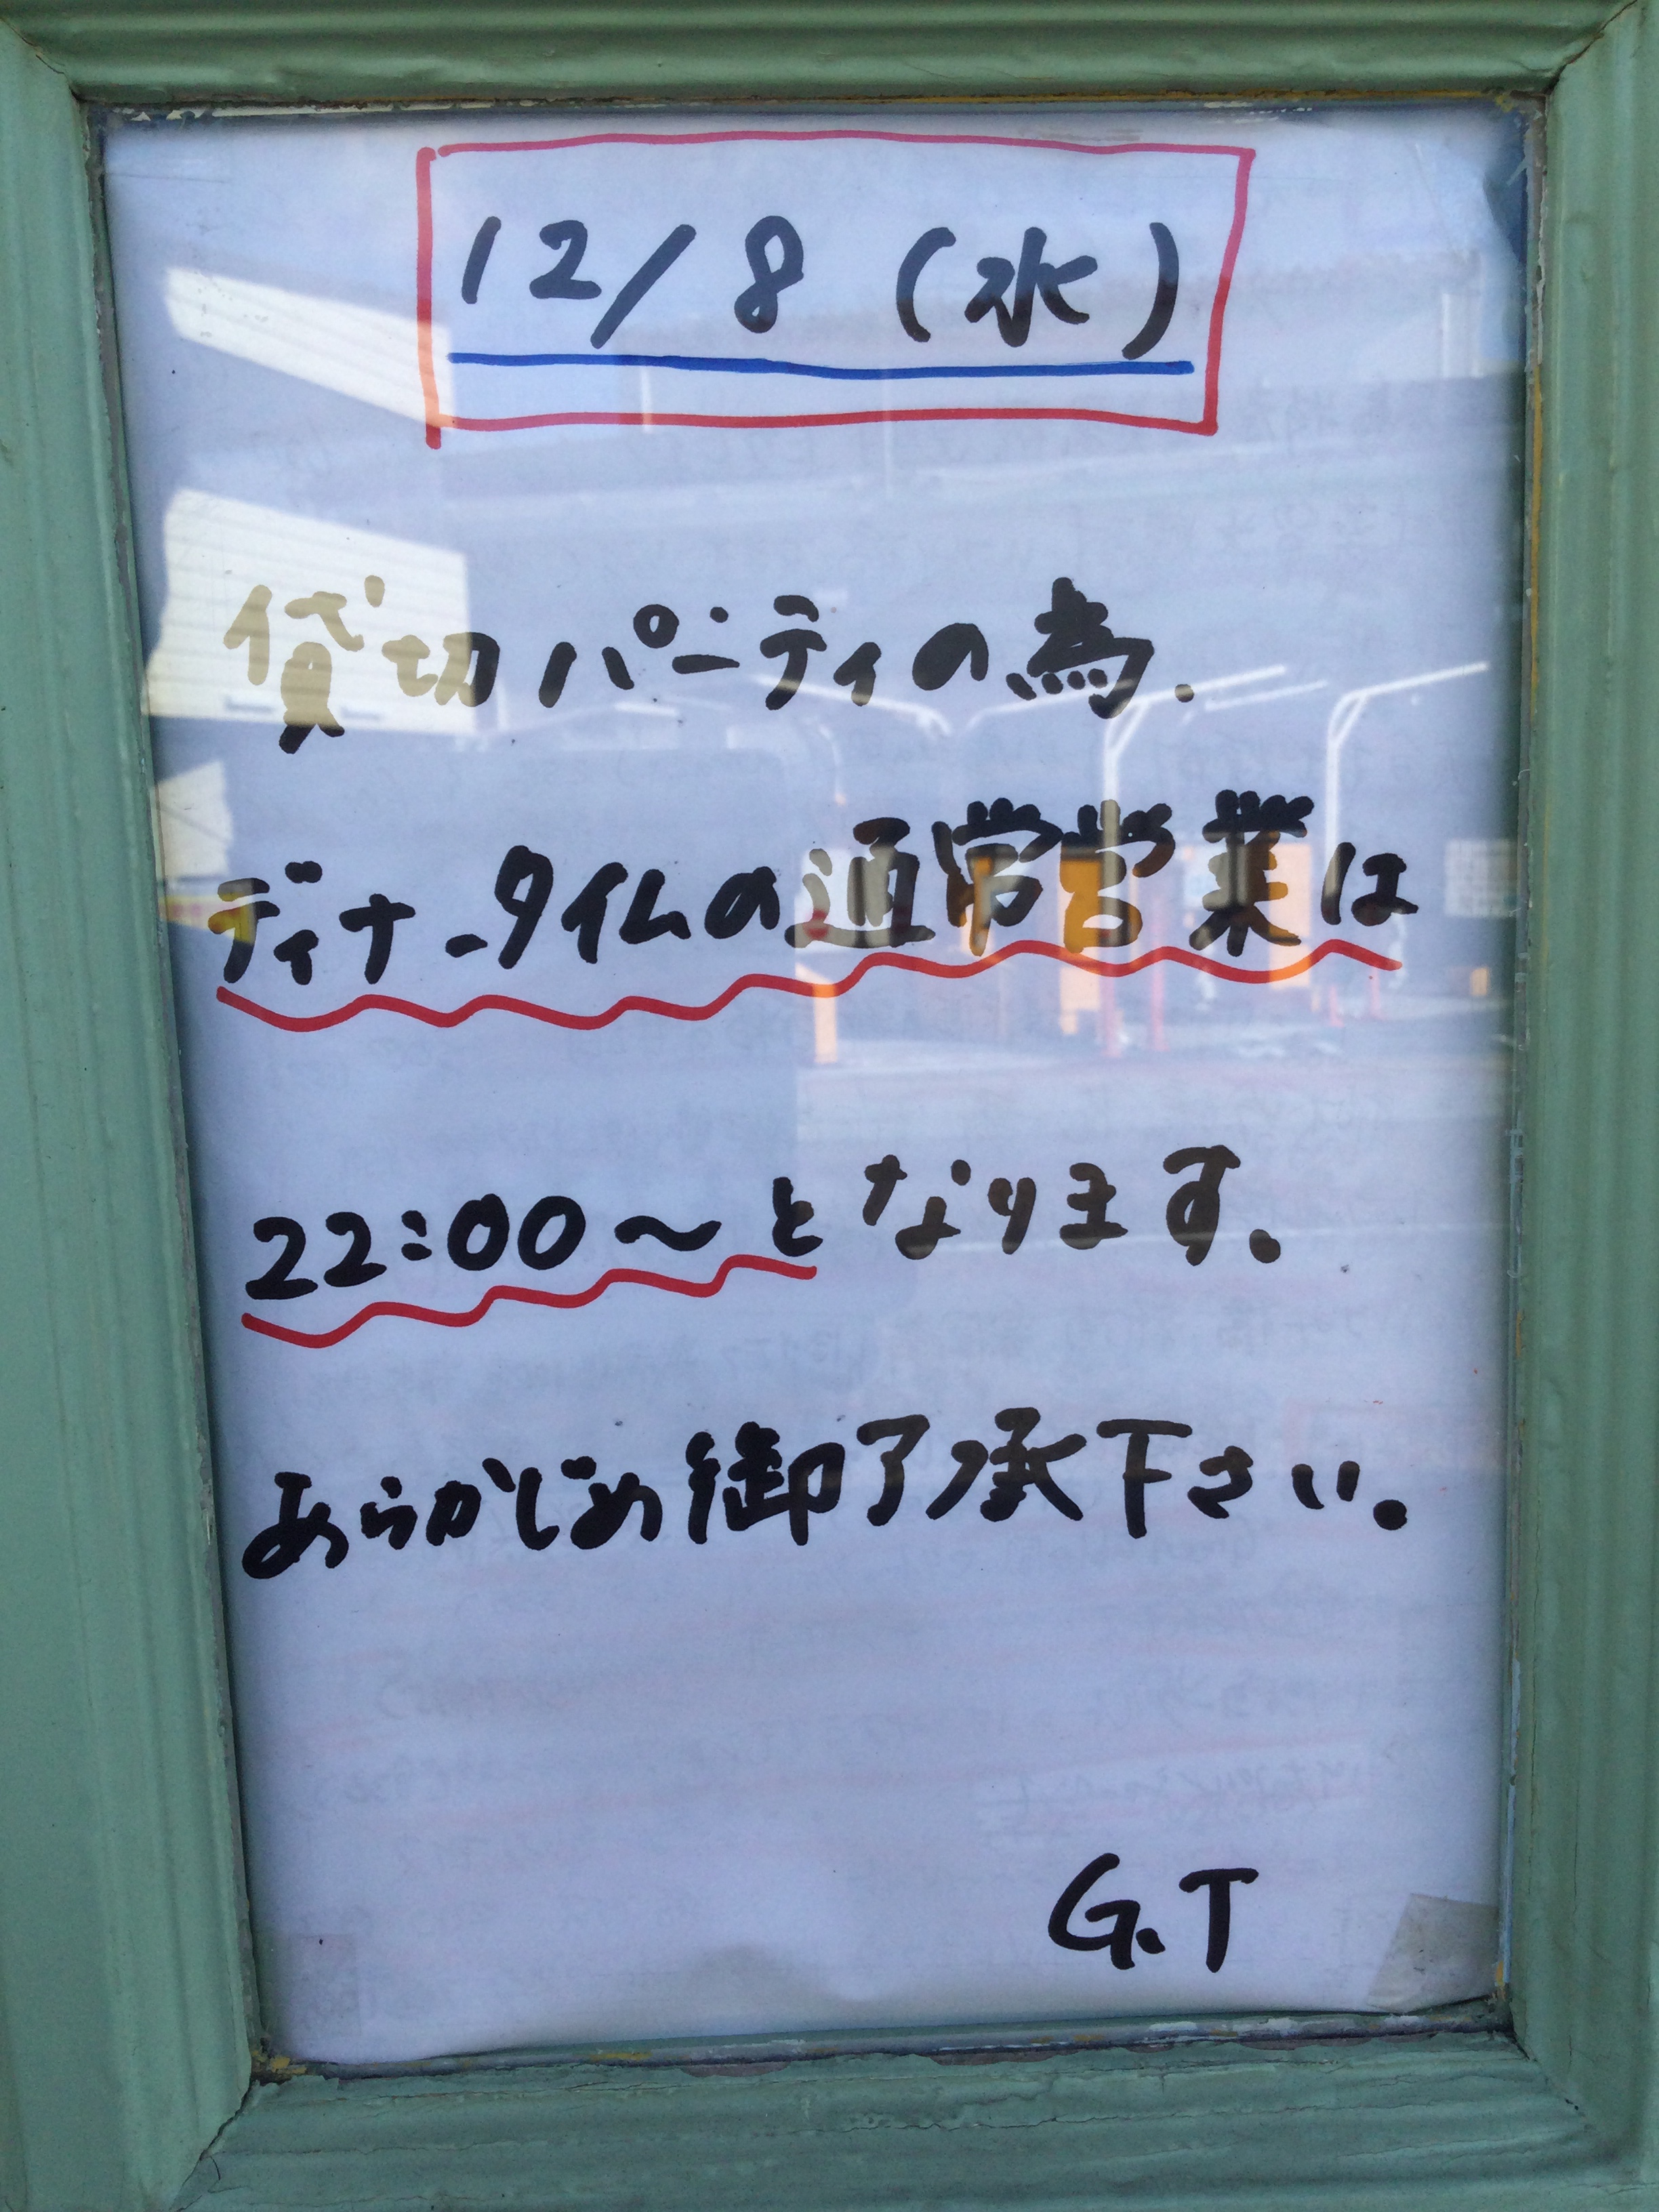 12/8 (水)
貸切パーティの為.
ディナータイムの通常営業は
22:00～となります。
あらかじめ御了承下さい。
G.T